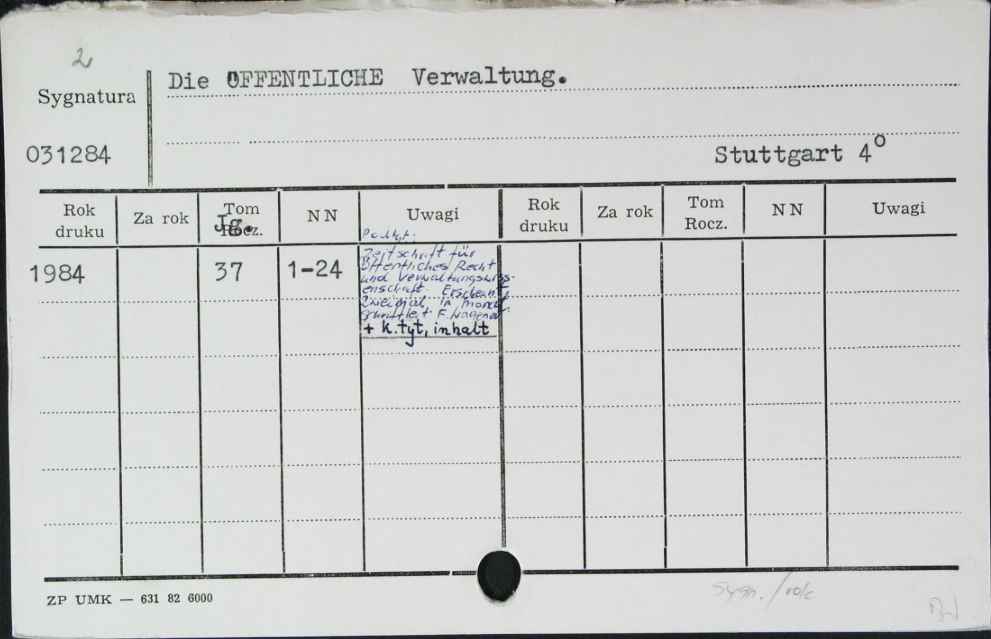 2
Sygnatura
Die OFFENTLICHE Verwaltung.
031284
Stuttgart 4°
Rok druku Za rok Tom Rocz. Jg. NN Uwagi Rok druku Za rok Tom Rocz. NN Uwagi
Podtyt:
1984 37 1-24 Zeitschrift für
öffentliches Recht
und Verwaltungswiss-
enschaft
Zweimal in Monat
F. Wagener
+ k. tyt, inhalt
ZP UMK — 631 82 6000
sygn. / rok